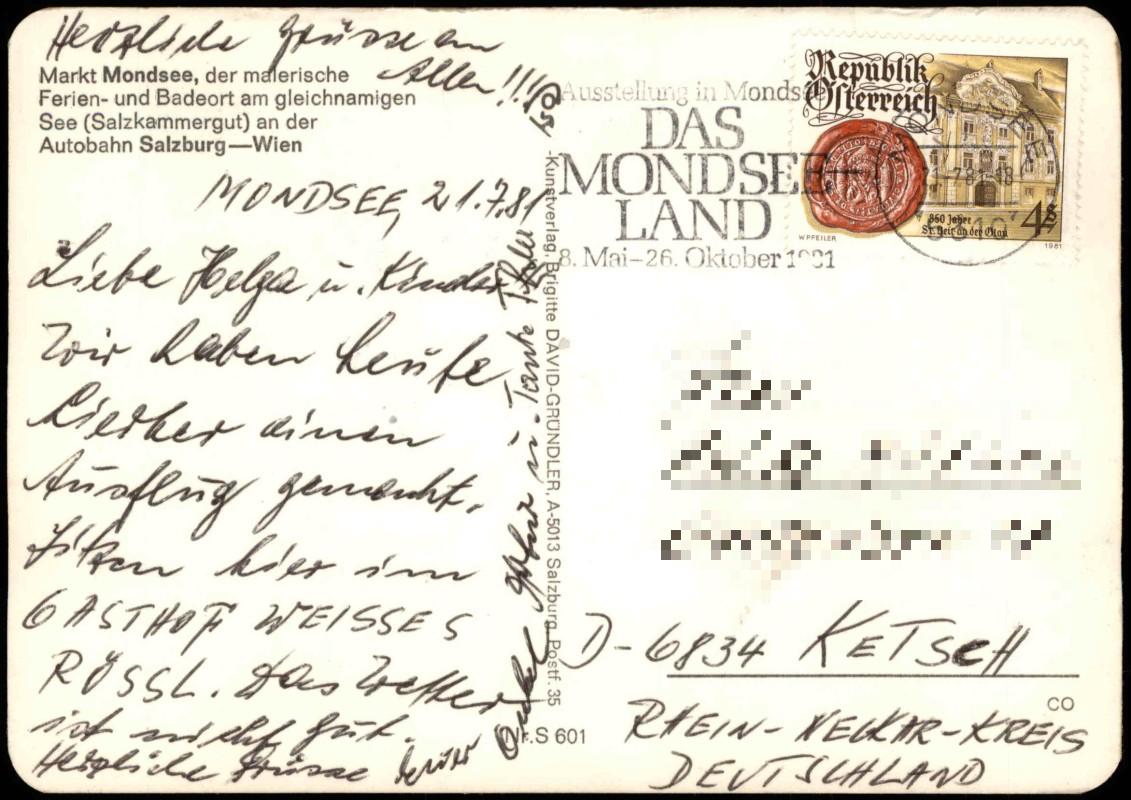 Herzliche Grüsse an
Allen!!!
Markt Mondsee, der malerische
Ferien- und Badeort am gleichnamigen
See (Salzkammergut) an der
Autobahn Salzburg—Wien
MONDSEE, 21.7.81
Liebe Helga u. Kinder
Wir haben heute
hierher einen
Ausflug gemacht,
sitzen hier im
GASTHOF WEISSES
RÖSSL. Das Wetter
ist nicht gut.
Herzliche Grüsse
Onkel u. Tante
Kunstverlag, Brigitte DAVID-GRÜNDLER, A-5013 Salzburg, Postf. 35
Nr. S 601
Ausstellung in Monds
DAS
MONDSEE
LAND
8. Mai–26. Oktober 1981
Republik
Österreich
850 Jahre
St. Veit an der Glan
4S
W PFEILER
1981
D-6834 KETSCH
CO
RHEIN-NECKAR-KREIS
DEUTSCHLAND